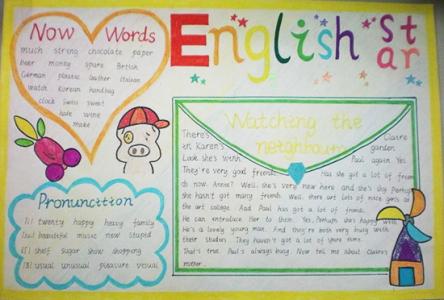 English st
ar
Now Words
much string chocolate paper
beer money spare British
German plastic leather Italian
watch Korean handbag
clock Swiss sweet
hate wine
make
Watching the
neighbours
There's Claire
in Karen's garden.
Look she's with Paul again. Yes.
They're very good friends. Has she got a lot of friends
do now, Annie? Well, she's very new here and she's shy.
she hasn't got many friends. Well, there are lots of nice girls at
the art collage. And Paul has got a lot of friends.
He can introduce Her to them. Yes. Perhaps she's happy with
He's a lovely young man. And they're both very busy with
their studies. They haven't got a lot of spare time.
That's true. Paul's always busy. Now tell me about Claire's
mother...
Pronuncition
[i] twenty happy heavy family
[u:] beautiful music new stupid
[ʃ] shelf sugar show shopping
[ʒ] usual unusual pleasure visual